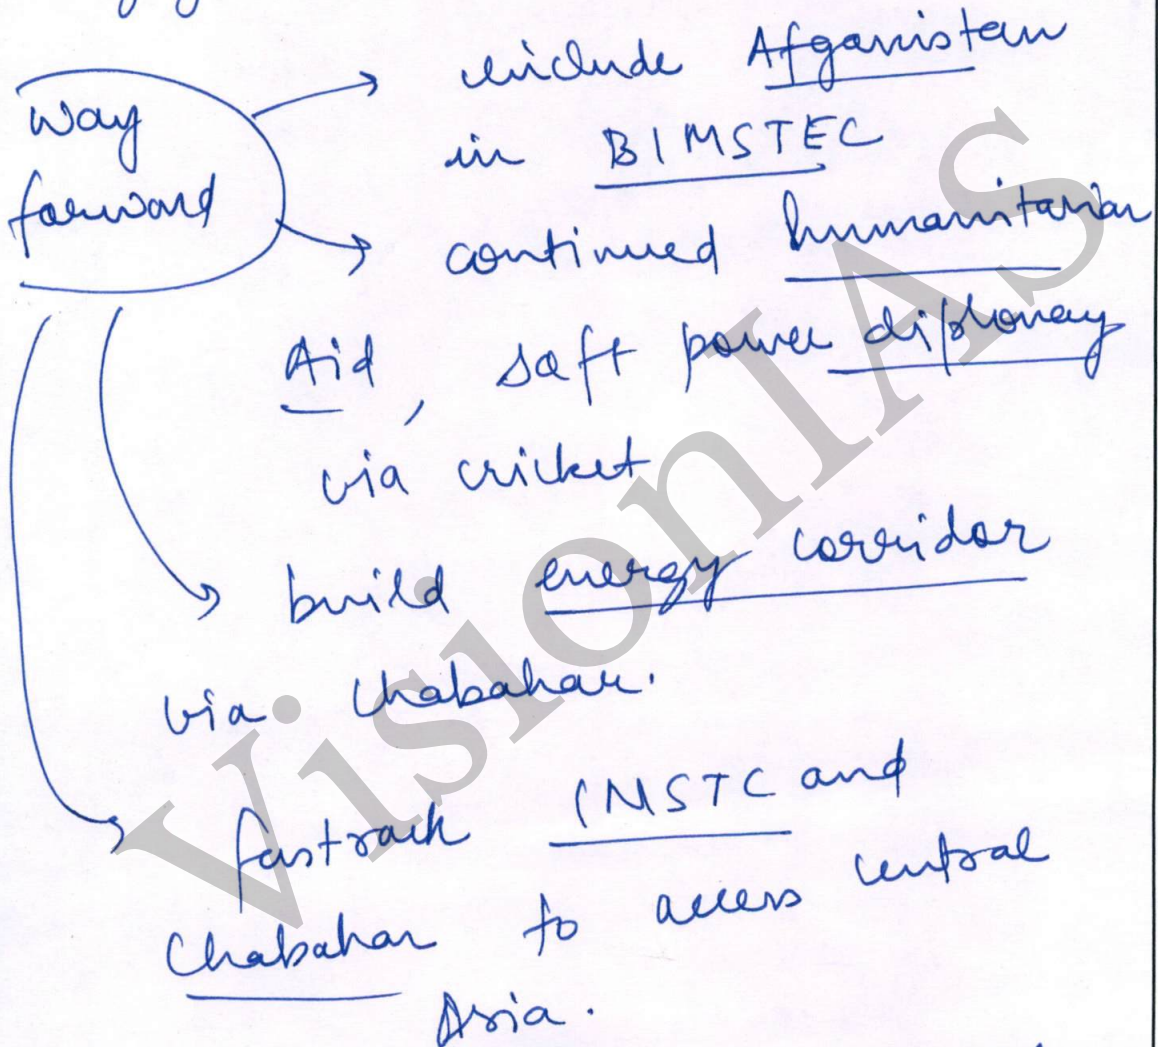 way
forward
include Afganistan
in BIMSTEC
continued humanitarian
Aid, soft power diplomacy
via cricket
build energy corridor
via Chabahar.
fastrack INSTC and
Chabahar to access central
Asia.
VisionIAS